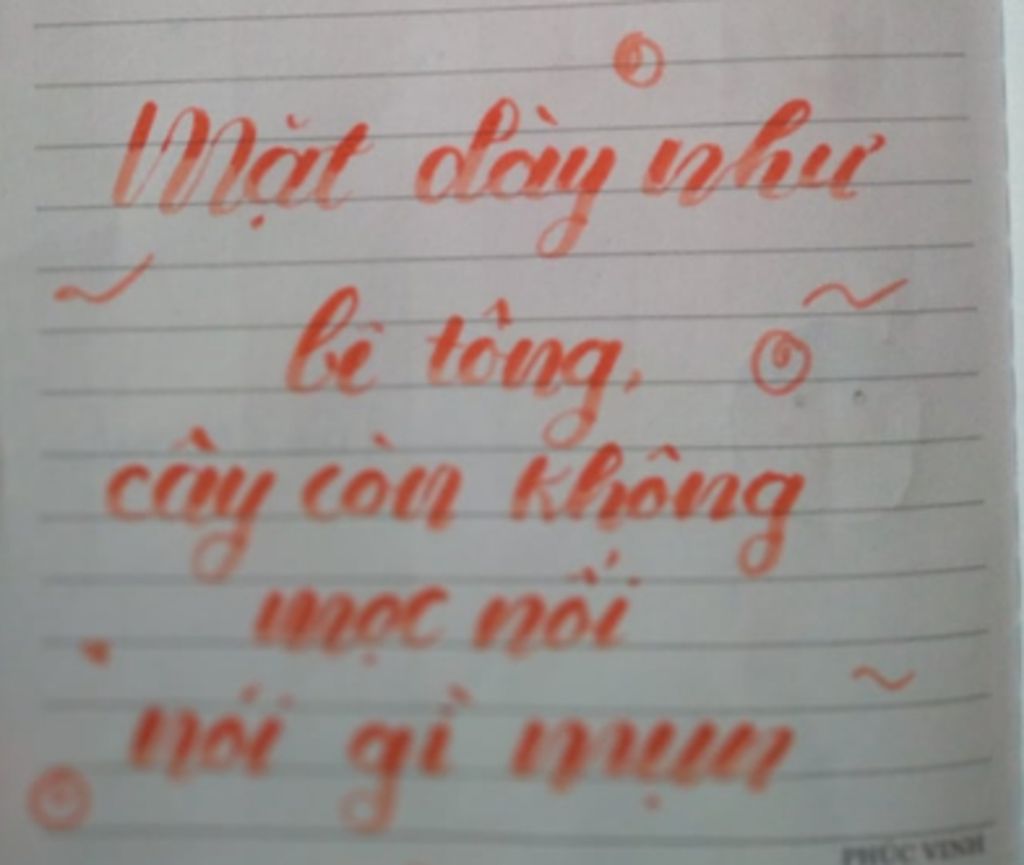 Mặt dày như
bê tông,
cây còn không
mọc nối
nói gì mụn
PHÚC VINH